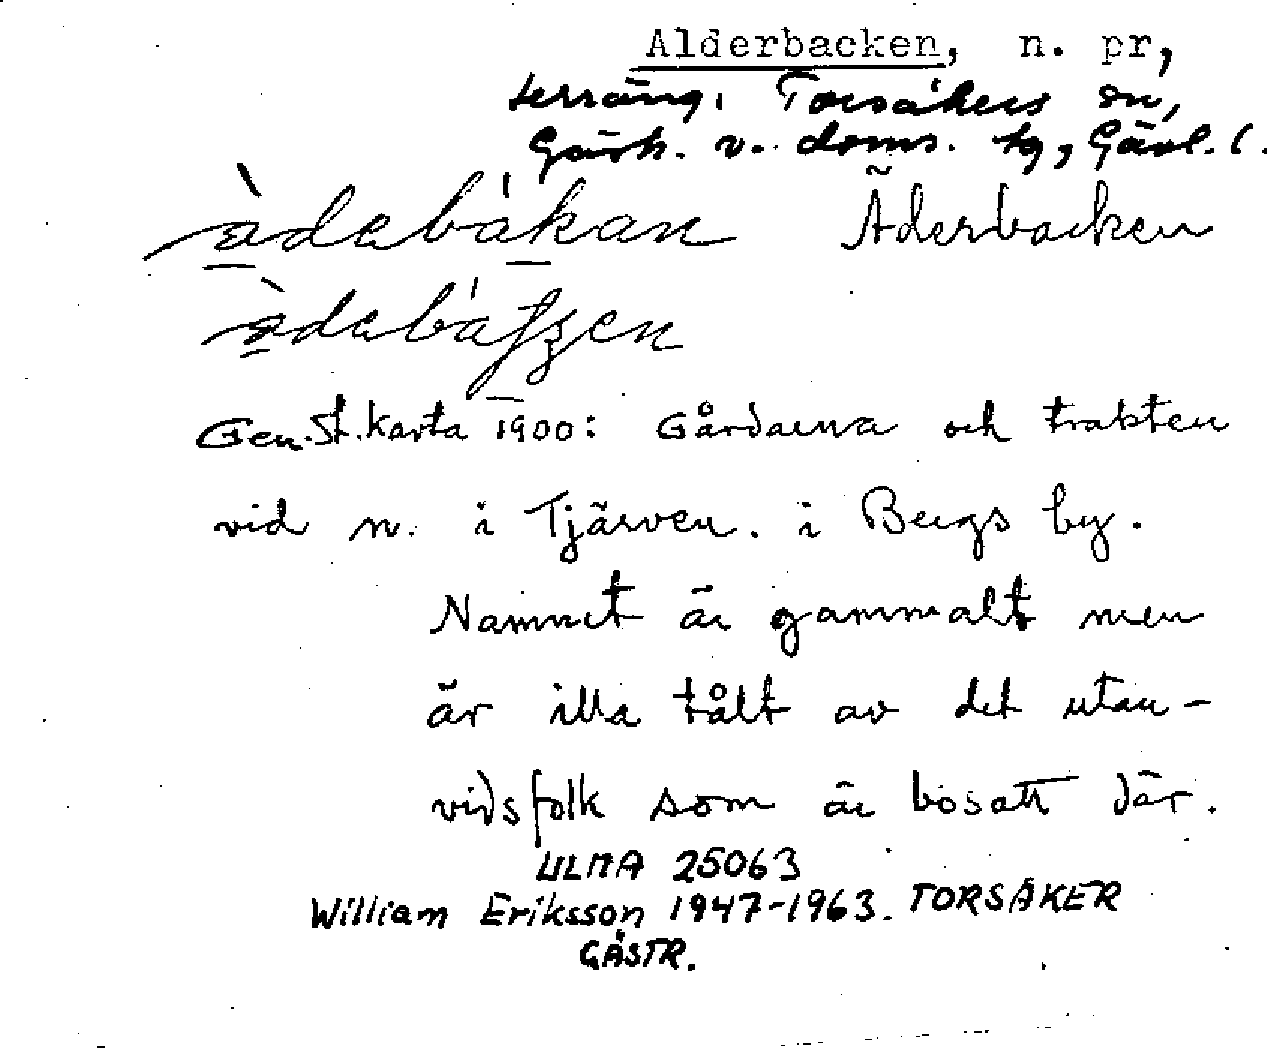 Alderbacken, n. pr,
terräng. Torsåkers sn,
Gästr. v. doms. tg, Gävl. l.
àdebákan Äderbacken
Gen.St.karta 1900: Gårdarna och trakten
vid n. i Tjärven. i Bergs by.
Namnet är gammalt men
är illa tålt av det utan-
vidsfolk som är bosatt där.
ULMA 25063
William Eriksson 1947-1963. TORSÅKER
GÄSTR.